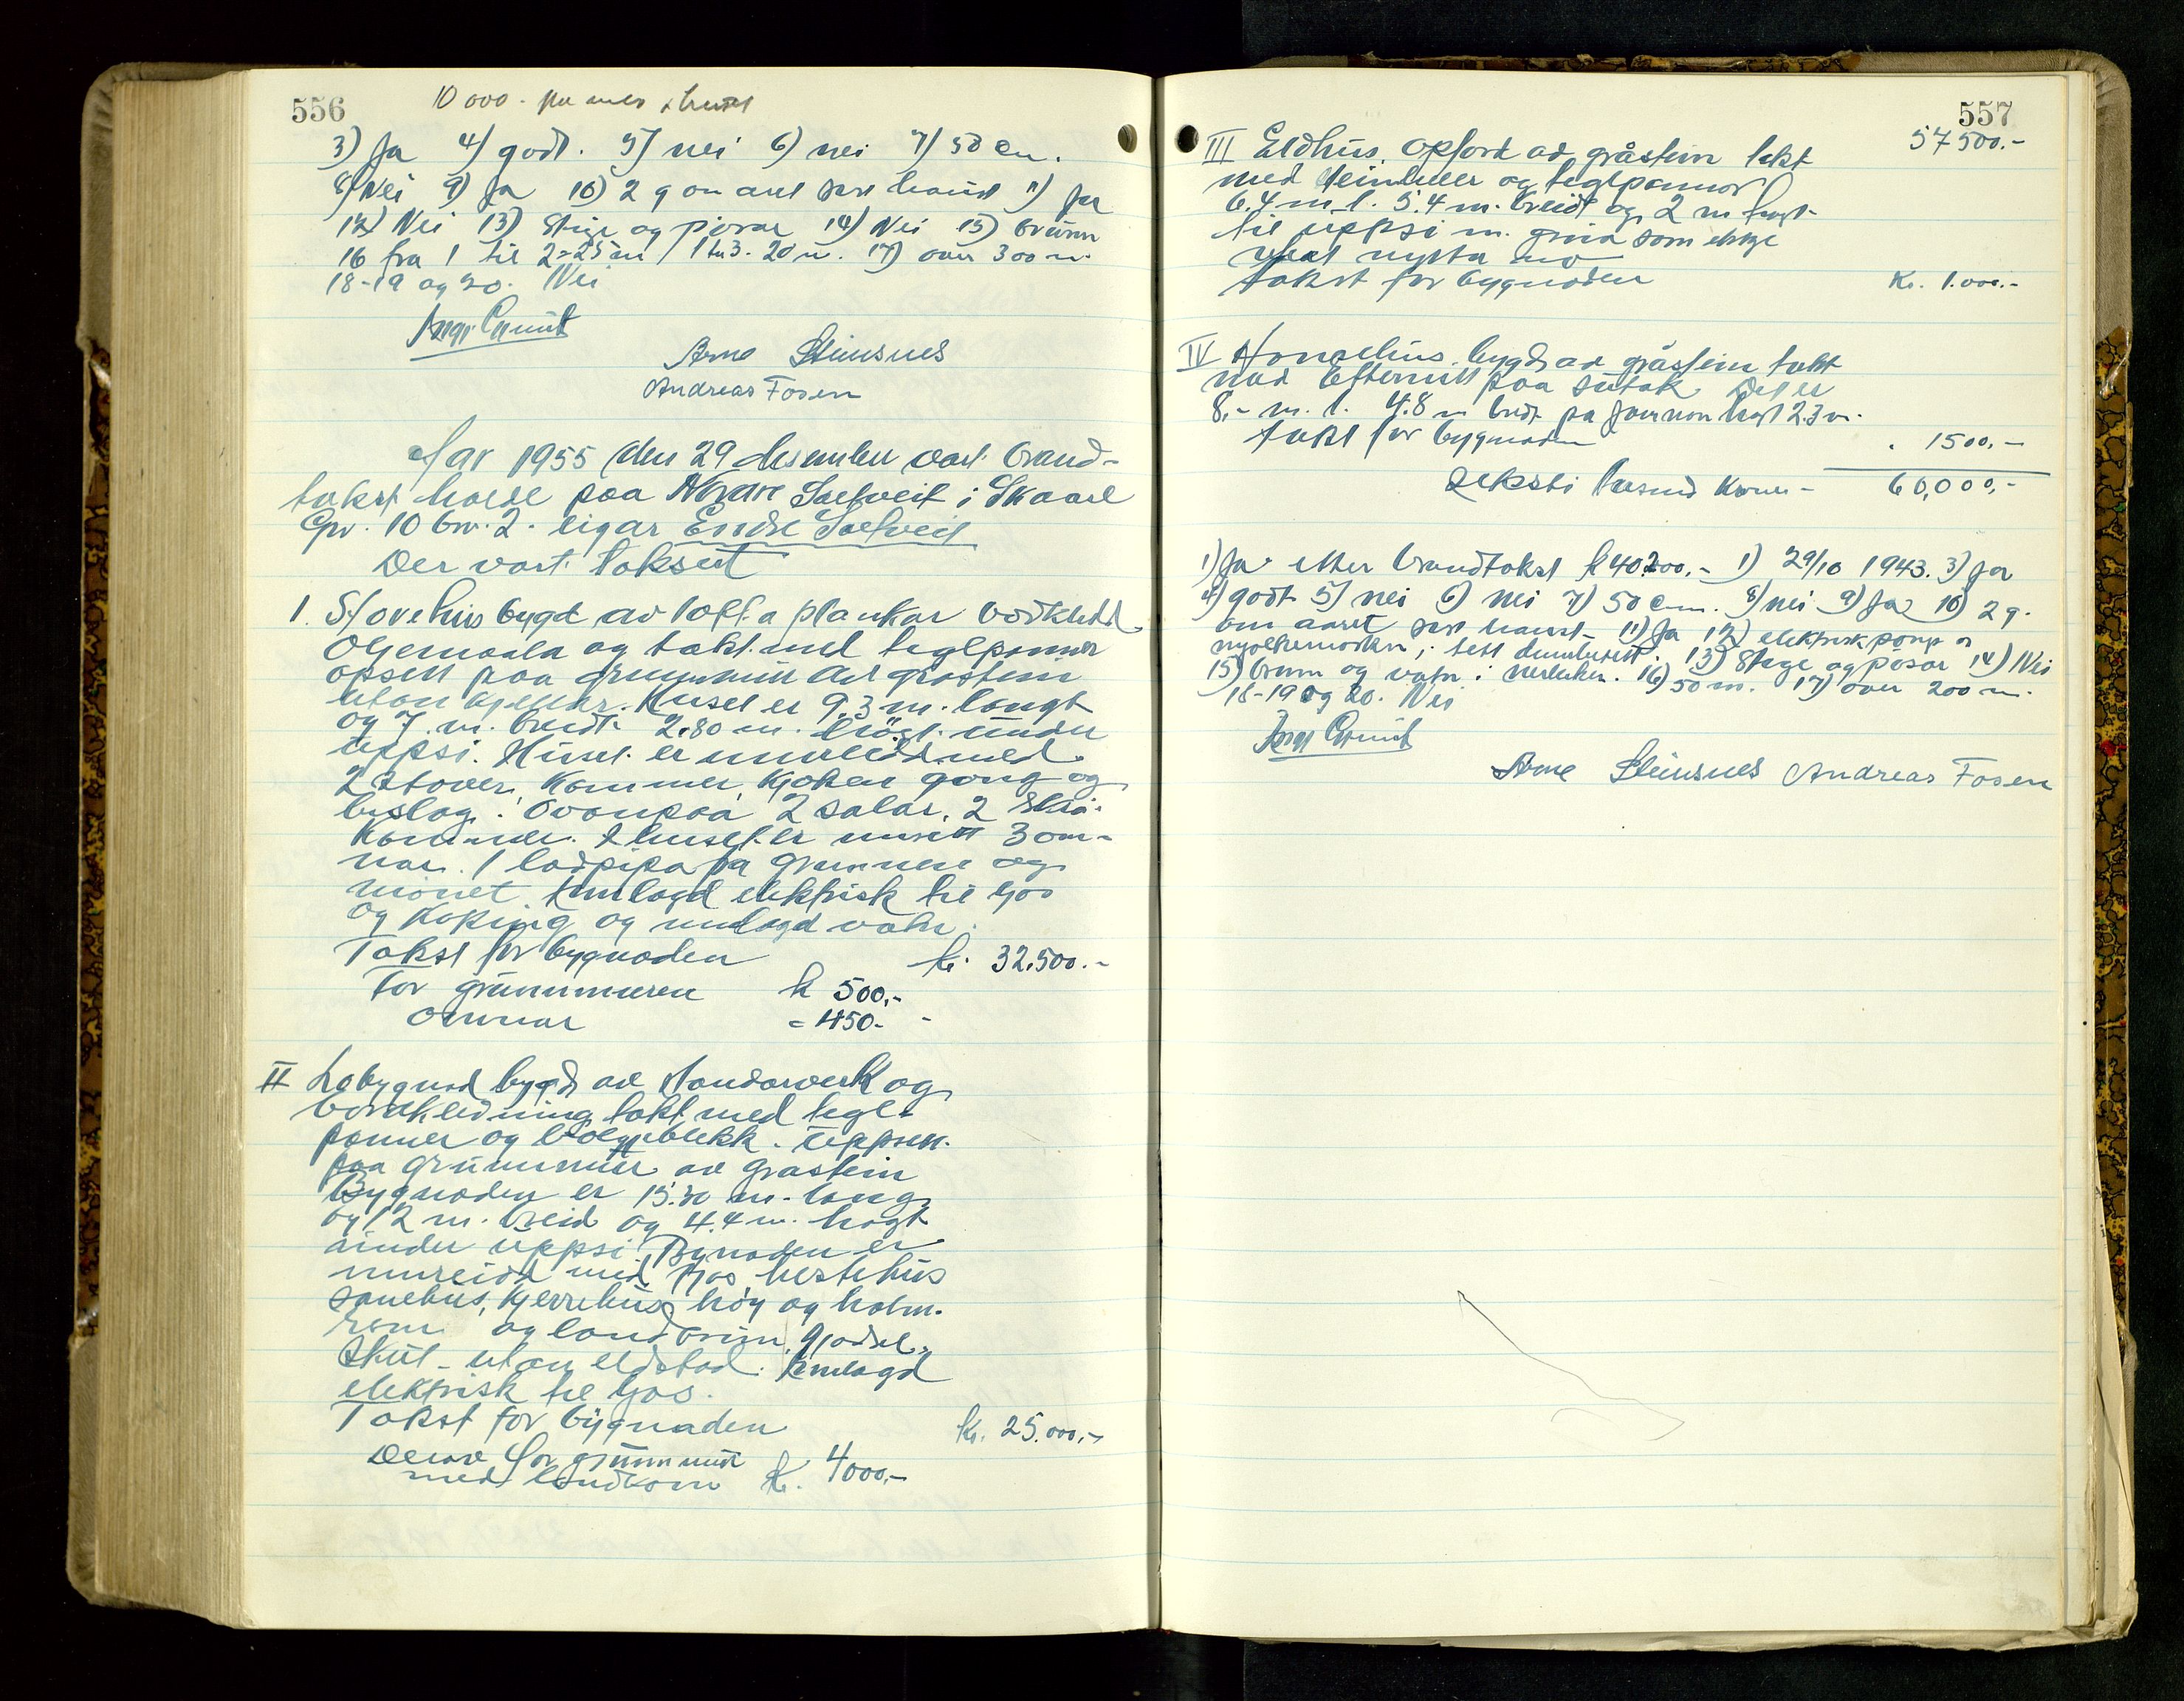 556
10 000.-
3) Ja 4) godt. 5) nei 6) nei 7) 50 cm.
8) Nei 9) Ja 10) 2 g om aaret sers haust 11) Ja
12) Nei 13) Stige og pøsar 14) Nei 15) Brunn
16 fra 1 til 2 = 25 m / 1 til 3. 20 m. 17) over 300 m.
18-19 og 20. Nei
Arne Steinsnes
Andreas Fosen
Aar 1955 den 29 desember vart brand-
takst halde paa Nordre Saltveit i Skaare
Gnr. 10 bnr. 2. eigar Endre Saltveit
Der vart taksert
1. Stovehus bygt av tofta plankar bordkledd
Oljemaala og takt med teglpanner
opsett paa grunnmur av grastein
utan kjellar. Huset er 9.3 m. langt
og 7. m. breidt 2.80 m. högt under
uppsi. Huset er innreidd med
2 stover, kammer, kjøken gong og
bislag. Ovanpaa 2 salar, 2 skrå-
kammer. I huset er innsett 3 om-
nar. 1 ladpipa fra grunnen og
mönet. Innlagd elektrisk til ljos
og koking og innlagd vatn.
Takst for bygnaden kr. 32.500.-
For grunnmuren kr 500,-
Omnar = 450.-
II Løbygnad bygd av standarverk og
bordkledning takt med tegl-
panner og bølgjeblekk. Uppsett
paa grunnmur av grastein
Bygnaden er 15.30 m. lang
og 12 m. breid og 4.4 m. högt
under uppsi. Bynaden er
innreidd med fjos, hestehus
sauehus, kjerrehus, høy og halm-
rom og landrum, gjødsel-
skut - utan eldstad. Innlagd
elektrisk til ljos.
Takst for bygnaden kr. 25.000,-
Derav for grunnmur
med landrom kr. 4000,-
557
57500.-
III Eldhus. Opført av gråstein tekt
med steinheller og teglpannor
6.4 m. l. 5.4 m. breidt og 2 m høgt
til uppsi m. grua som ikkje
vert nytta no
takst for bygnaden Kr. 1.000.-
IV Honsehus bygd av gråstein takt
med Eternitt paa sutak. Det er
8.- m. l. 4.8 m bredt høgt 2.3 m.
takst for bygnaden " 1500,-
Seksti tusund kroner - 60,000,-
1) Ja etter brandtakst kr 40200,- 1) 29/10 1943. 3) Ja
4) godt 5) nei 6) nei 7) 50 cm. 8) nei 9) Ja 10) 2 g.
om aaret sers haust - 11) Ja 12) elektrisk pomp
13) Stige og pøsar 14) Nei
15) brunn og vatn i nerleiken. 16) 50 m. 17) over 200 m.
18-19 og 20. Nei
Arne Steinsnes Andreas Fosen